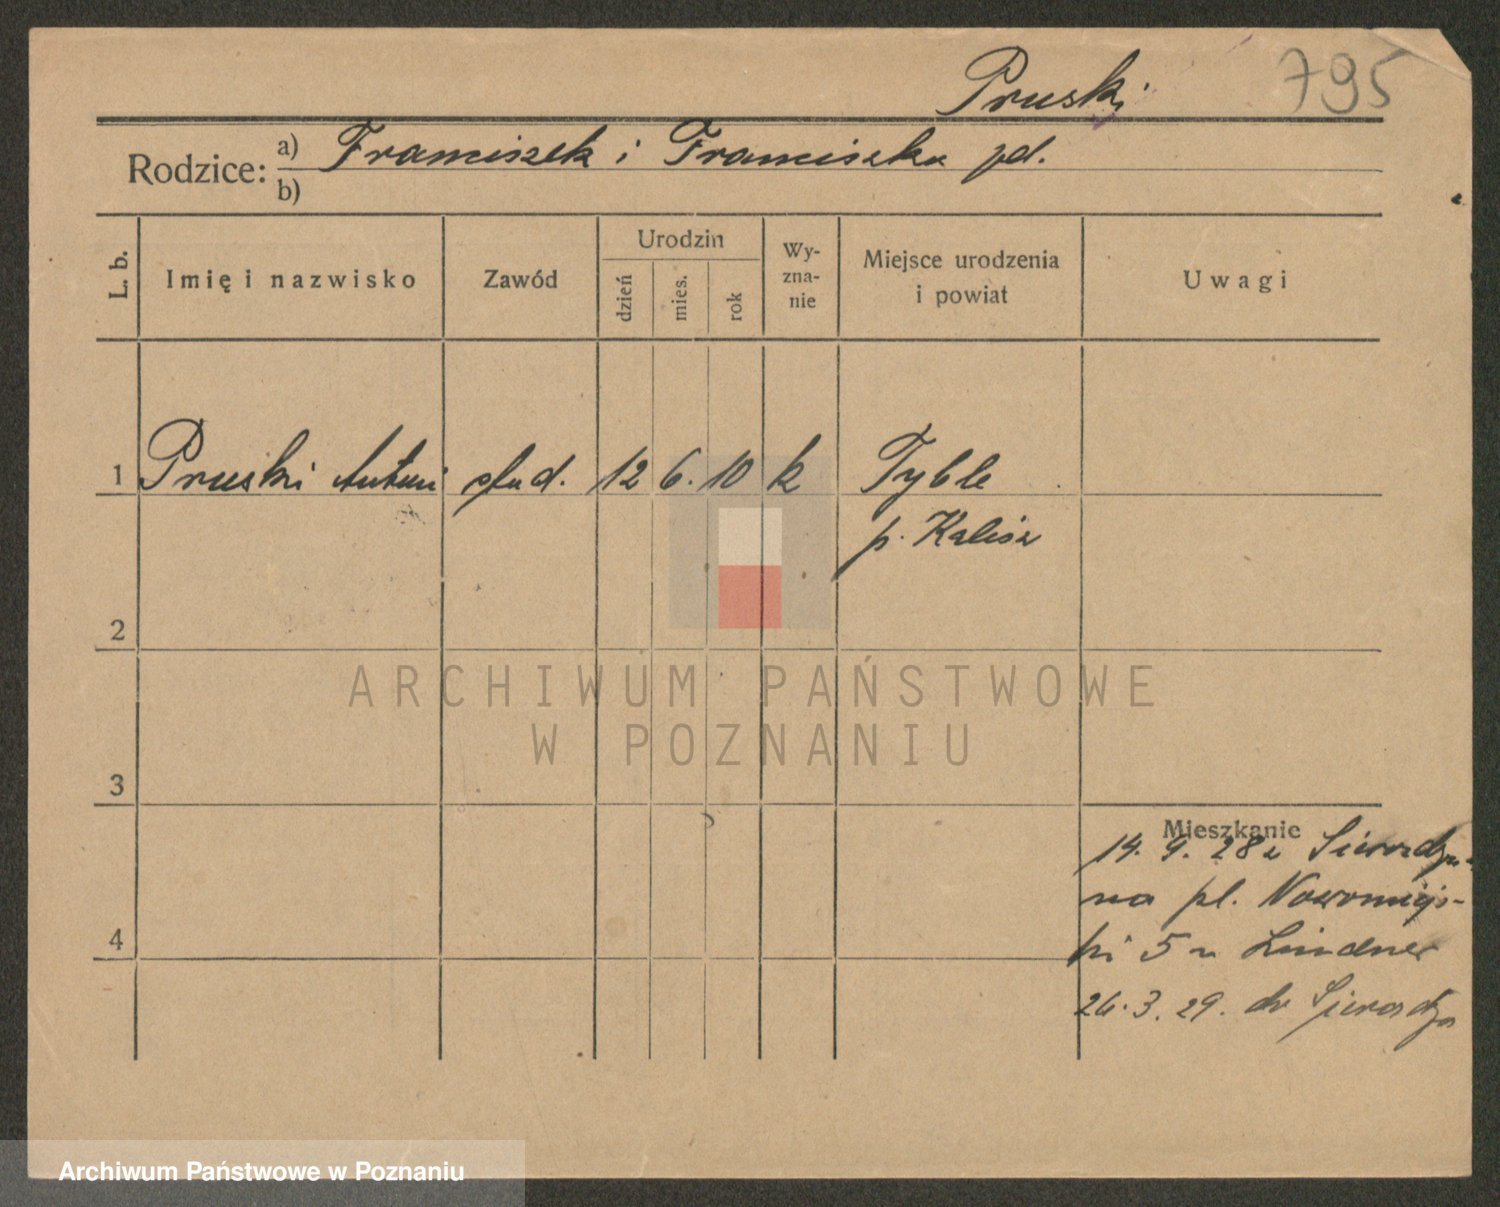 Pruski 795
Rodzice: a) Franciszek i Franciszka pd.
b)
L. b. Imię i nazwisko Zawód Urodzin dzień mies. rok Wy-zna-nie Miejsce urodzenia i powiat Uwagi
1 Pruski Antoni stud. 12 6. 10 k Tyble
p. Kalisz
2
ARCHIWUM PAŃSTWOWE
W POZNANIU
3
Mieszkanie
14. 9. 28 z Sieradza
na pl. Nowomiejs-
ki 5 u Lindner
26. 3. 29. do Sieradza
4
Archiwum Państwowe w Poznaniu